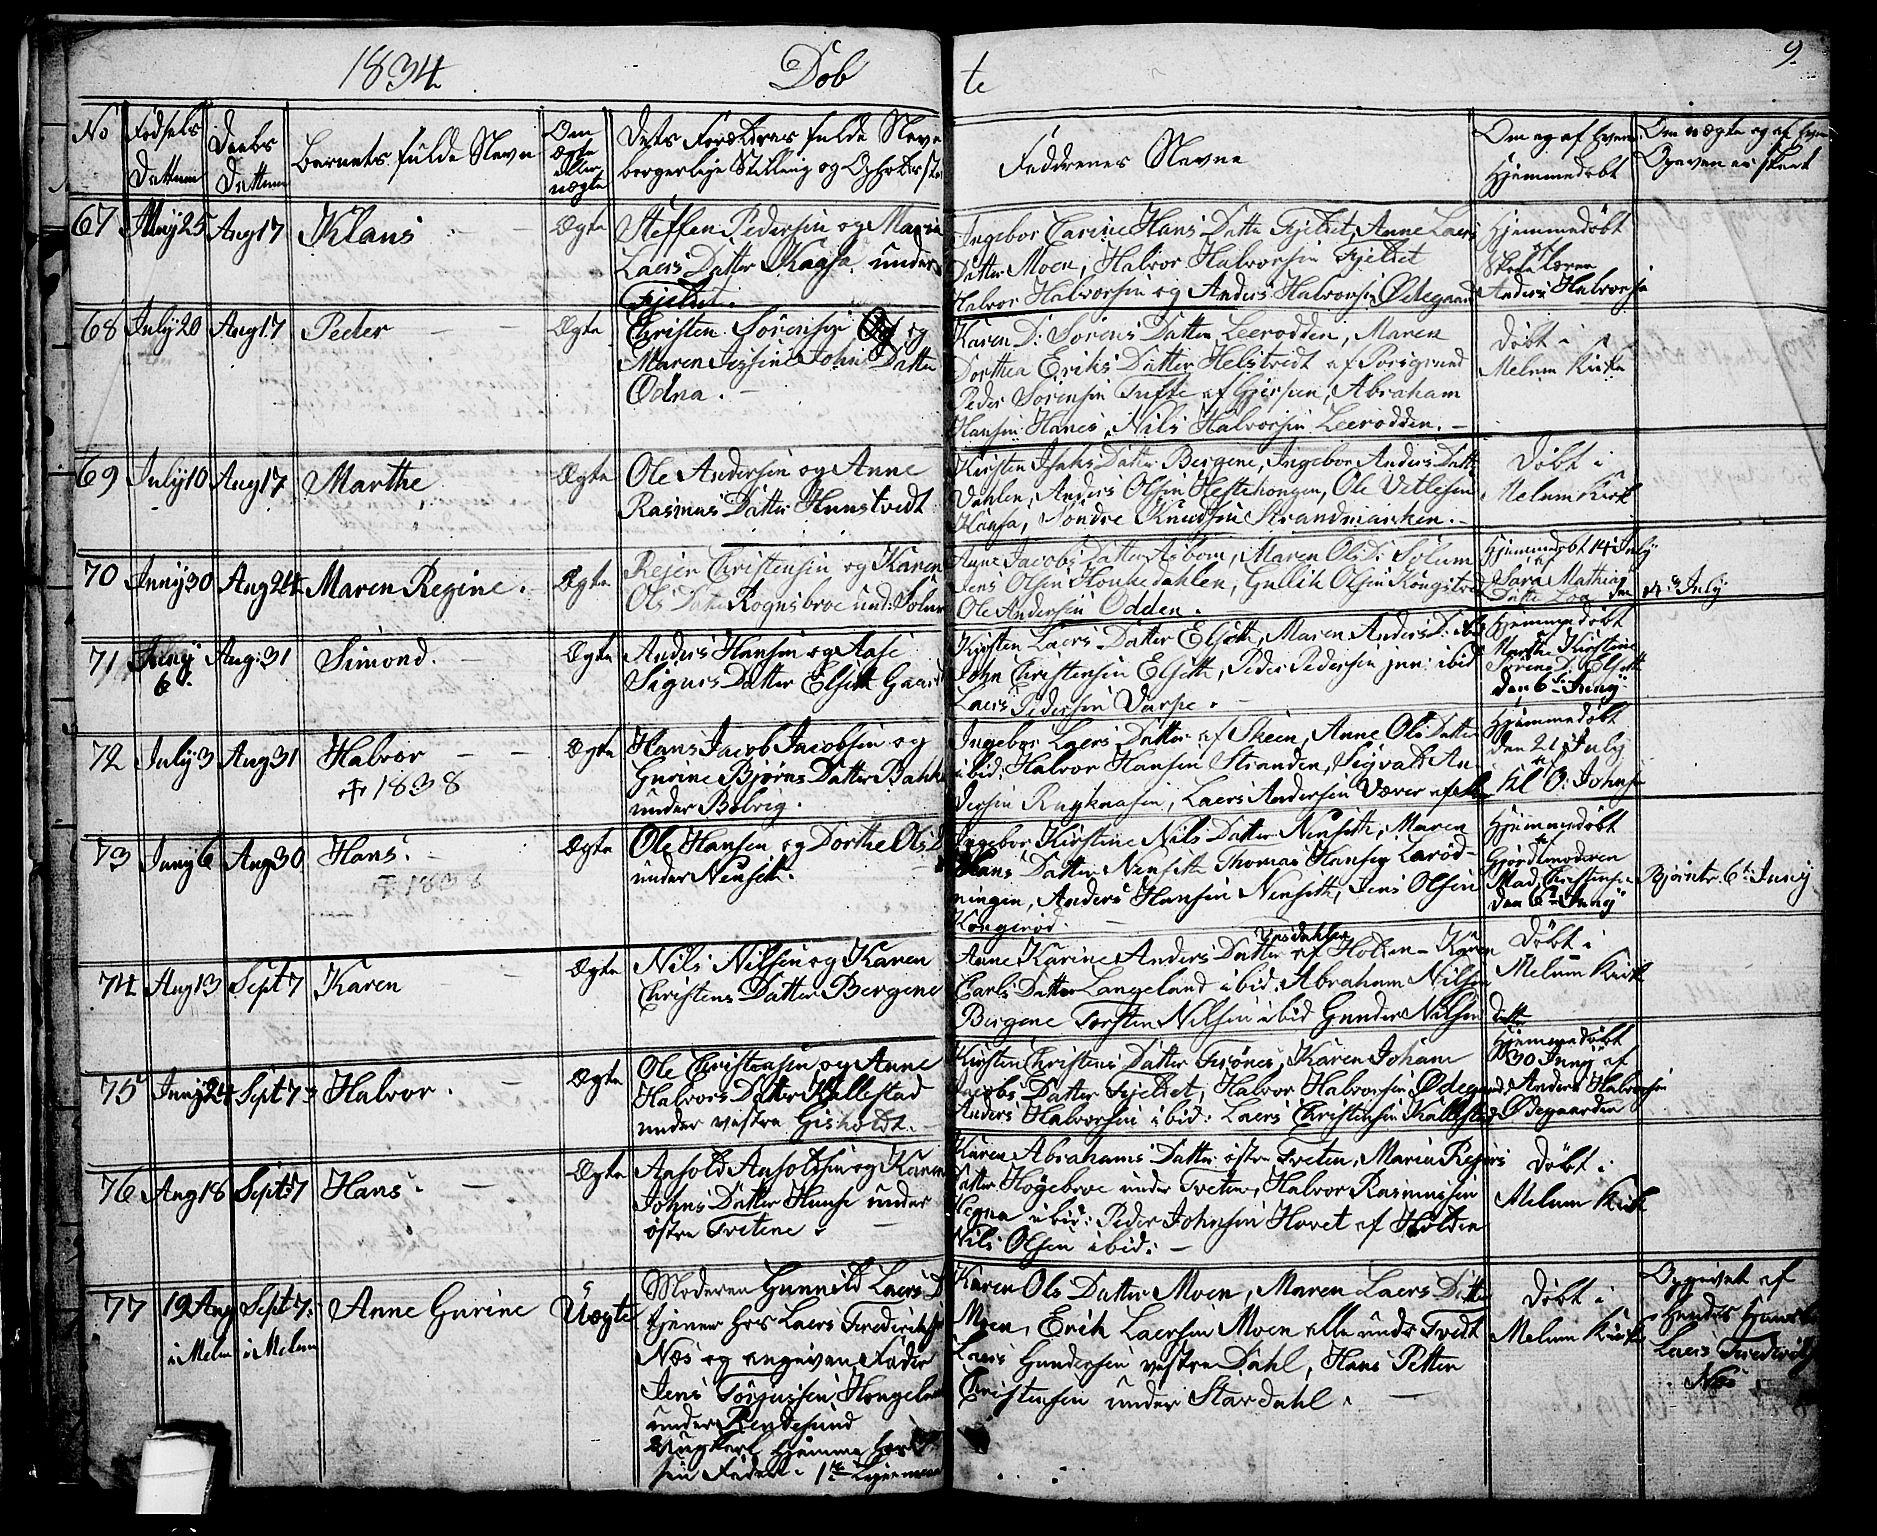 1834 Døbte 9
No Fødsels Dattum Daabs Dattum Barnets fulde Navn Om Ægte eller uægte Dets Forældres fulde Navn borgerlige Stilling og Opholds
Faddrenes Navne
Om og af hvem Hjemmedøbt
67 May 25 Aug 17 Klaus Ægte
Steffen Pedersen og Maria
Laers Datter Kaasa under
Fjeldet.
Ingebor Carine Hans Datter Fjeldet, Anne Laers
Datter Moen, Halvor Halvorsen Fjeldet
Halvor Halvorsen og Anders Halvorsen Ødegaard
Hjemmedøbt
af
Skolelæren
Anders Halvorsen
68 July 20 Aug 17 Peder Ægte
Christen Sørensen og
Maren Johns Datter
Odna.
Karen D: Sørens Datter Leerodden, Maren
Dorthea Eriks Datter Helstvedt af Porsgrund
Peder Sørensen Tufte af Gjerpen, Abraham
Hansen Hanes, Nils Halvorsen Leerodden.
Døbt i
Melum Kirke
69 July 10 Aug 17 Marthe Ægte
Ole Andersen og Anne
Rasmus Datter Hunstvedt
Kirsten Isaks Datter Bergene, Ingebor Anders Datter
Dahlen, Anders Olsen Hestehougen, Ole Vetlesen
Haasa, Søndre Knudsen Strandmarken.
Døbt i
Melum Kirke
70 Juny 30 Aug 24 Maren Regine. Ægte
Rejer Christensen og Karen
Ols Datter Rognsbroe und: Solum
Anne Jacobs Datter Aasbom, Maren Ols D: Solum
Jens Olsen Houkedahlen, Gullik Olsen
Ole Andersen Odden.
Hjemmedøbt 14 July
af
Sara Mathias
Datter den 14 July
71 Juny 6. Aug: 31 Simond. Ægte
Anders Hansen og Aase
Sigurs Datter Elseth
Kirsten Laers Datter Elseth, Maren Anders D:
John Christensen Elseth, Peder Pedersen jun: ibid
Laers Pedersen Varpe.
Hjemmedøbt
Marthe Kirstine
Sørens D: Elseth
den 6te Juny
72 July 3 Aug 31 Halvor Ægte
✝ 1838
Hans Jacob Jacobsen og
Gurine Bjørns Datter Bakke
under Bolvig.
Ingebor Laers Datter af Skeen, Anne Ols Datter
ibid: Halvor Hansen Stranden, Sigvald An
dersen Rugknasen, Laers Andersen
Hjemmedøbt
den 21 July
af
Kl O: Johnsen
73 Juny 6 Aug 30 Hans. Ægte
✝ 1838
Ole Hansen og Dorthe Ols D
under Nenseth.
Ingebor Kirstine Nils Datter Nenseth, Maren
Hans Datter Nenseth Thomas Hansen Larød-
ningen, Anders Hansen Nenseth, Jens Olsen
Kongerød.
Hjemmedøbt
af
Gjordemoderen
Mad. Christense
den 6te Juny
6te Juny
74 Aug 13 Sept 7 Karen Ægte
Nils Nilsen og Karen
Christens Datter Bergene
Anne Karine Anders Datter af Holden - Karen
Carls Datter Langeland ibid: Abraham Nilsen
Bergene Torsten Nilsen ibid Gunder Nilsen
Døbt i
Melum Kirk
75 Juny 24 Sept 7 Halvor. Ægte
Ole Christensen og Anne
Halvors Datter Kallestad
under vestre Gisholdt.
Kirsten Christens Datter Trønes, Karen Johane
Jacobs Datter Fjeldet, Halvor Halvorsen Ødegaard
Anders Halvorsen ibid: Laers Christensen Kallestad
Hjemmedøbt
30 Juny af
Anders Halvorsen
Ødegaarden
76 Aug 18 Sept: 7 Hans. Ægte
Aasold Aasoldsen og Karen
Johns Datter under
østre Tvetene.
Karen Abrahams Datter østre Tveten, Maria Rejers
Datter Høgebroe under Tveten, Halvor Rasmussen
ibid: Peder Johnsen Hovet af Holden
Nils Olsen ibid:
Døbt i
Melum Kirke
77 12 Aug Sept 7. Anne Gurine Uægte
i Melum i Melum
Moderen Gunnild Laers D
tjener hos Laers Frederiksen
Næs og angiven Fader
Jens Torjussen
under
Ungkarl hjemme hos
sin Fader. 1te
Karen Ols Datter Moen, Maren Laers Datter
Moen, Erik Laersen Moen alle under Tvedt
Laers Gundersen vestre Dahl, Hans Petter
Christensen under Stordahl.
Døbt i
Melum Kirke
Opgivet af
Laers Frederiksen
Næs